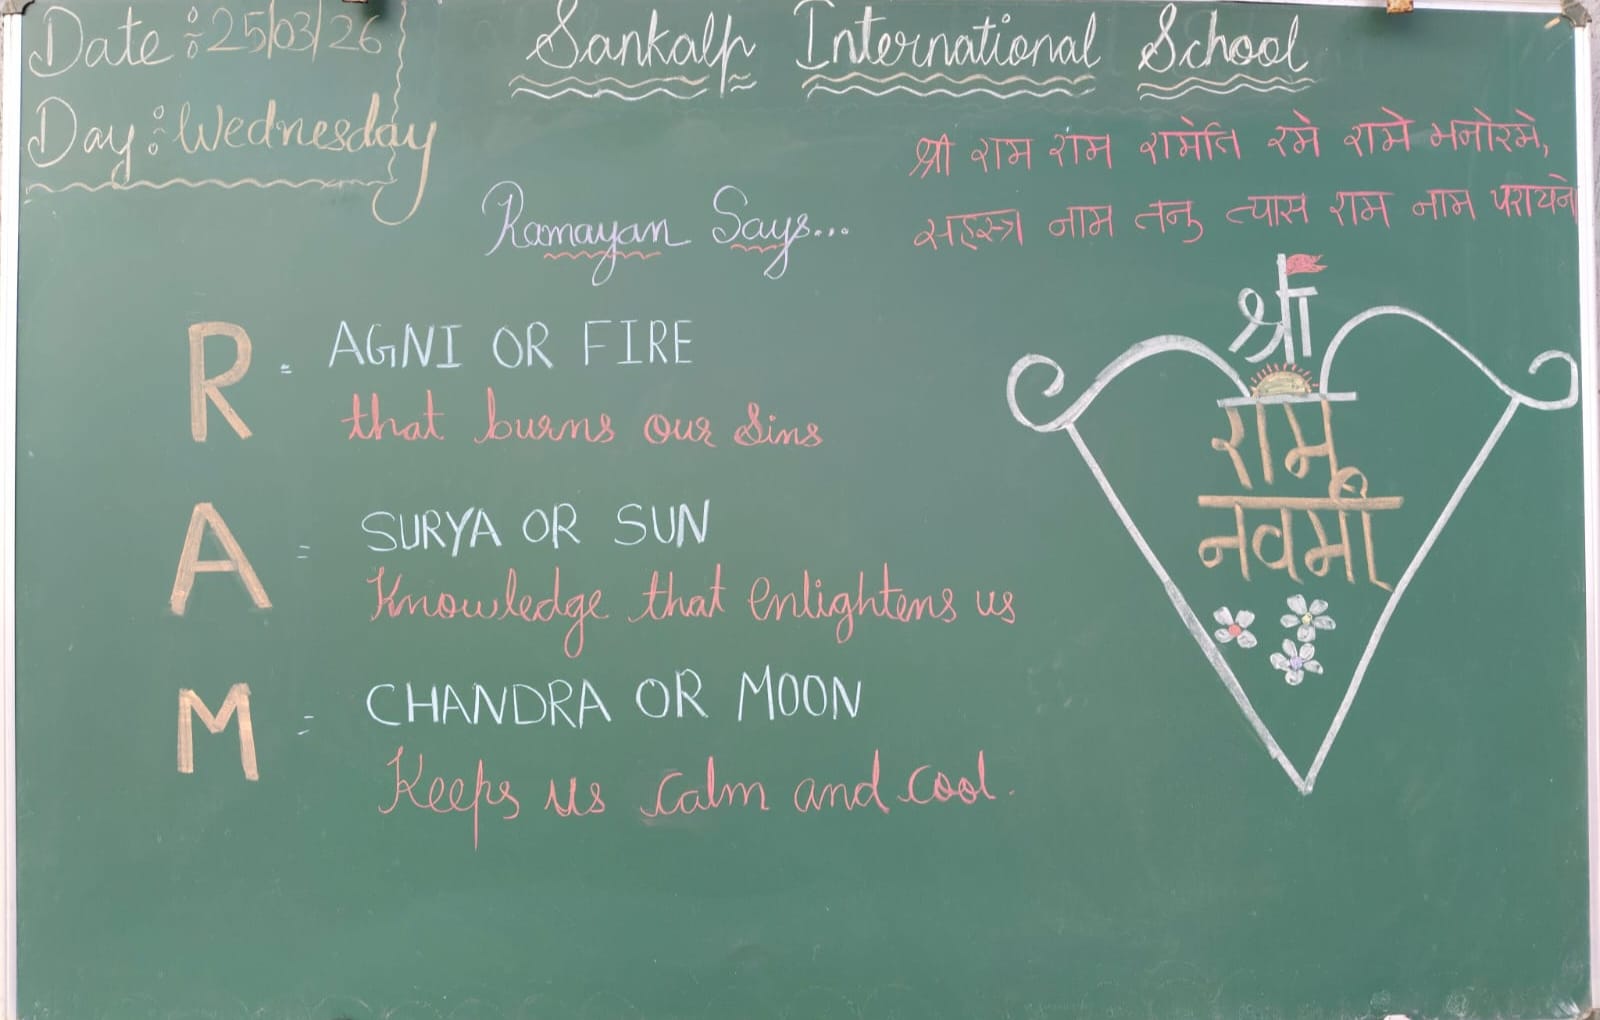 Date : 25/03/26
Sankalp International School
Day : Wednesday
श्री राम राम रामेति रमे रामे मनोरमे,
सहस्त्र नाम तनु त्यास राम नाम परायने
Ramayan Says...
R = AGNI OR FIRE
that burns our Sins
A = SURYA OR SUN
Knowledge that enlightens us
M = CHANDRA OR MOON
Keeps us calm and cool.
श्री
राम
नवमी